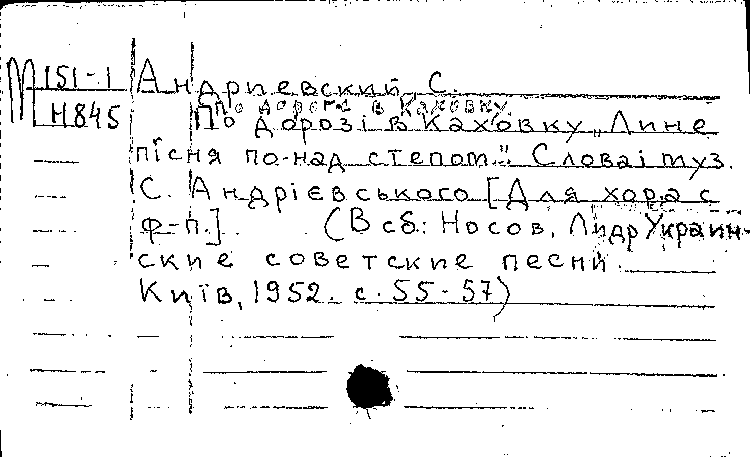 М 151-1 Андриевский, С.
По дороге в Каховку
Н845 По дорозі в Каховку „Лине
пісня по-над степом." Слова і муз.
С. Андрієвського [Для хора с
ф-п.] (В сб.: Носов, Лидр Украин-
ские советские песни.
Київ, 1952. с. 55-57)